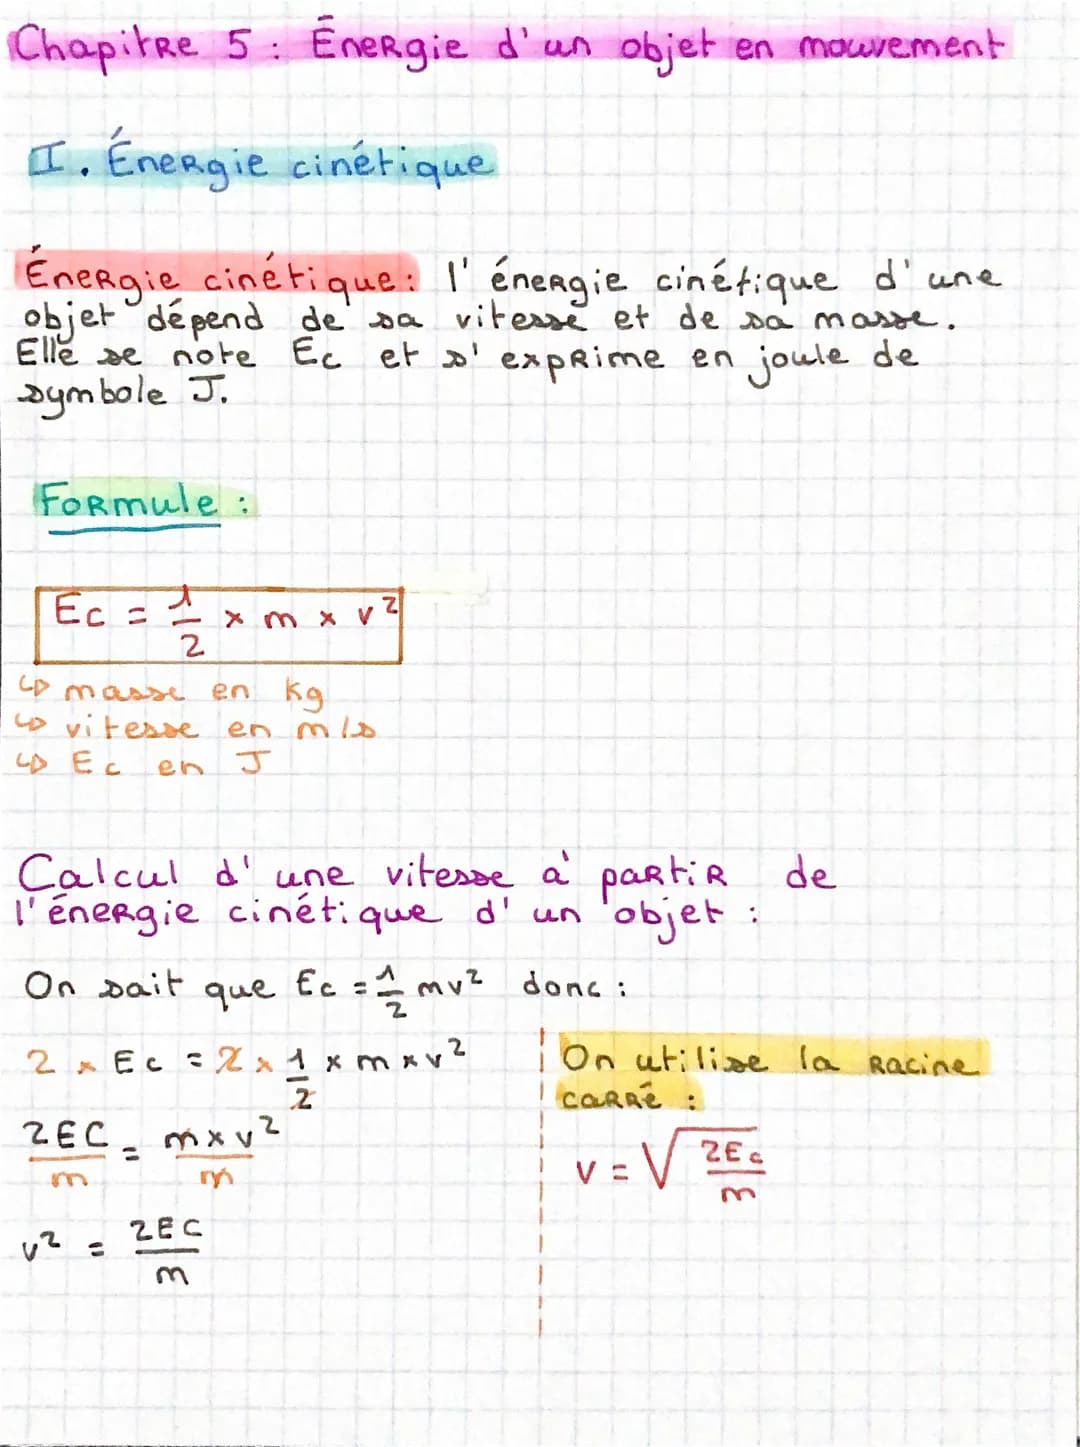 Chapitre 5 : Énergie d'un objet en mouvement
I. Énergie cinétique
Énergie cinétique : l'énergie cinétique d'une
objet dépend de sa vitesse et de sa masse.
Elle se note Ec et s'exprime en joule de
symbole J.
Formule :
Ec = 1/2 × m × v²
↳ masse en kg
↳ vitesse en m/s
↳ Ec en J
Calcul d'une vitesse à partir de
l'énergie cinétique d'un objet :
On sait que Ec = 1/2 mv² donc :
2 × Ec = 2 × 1/2 × m × v²
2EC/m = m×v²/m
v² = 2EC/m
On utilise la racine
carré :
v = √(2Ec/m)